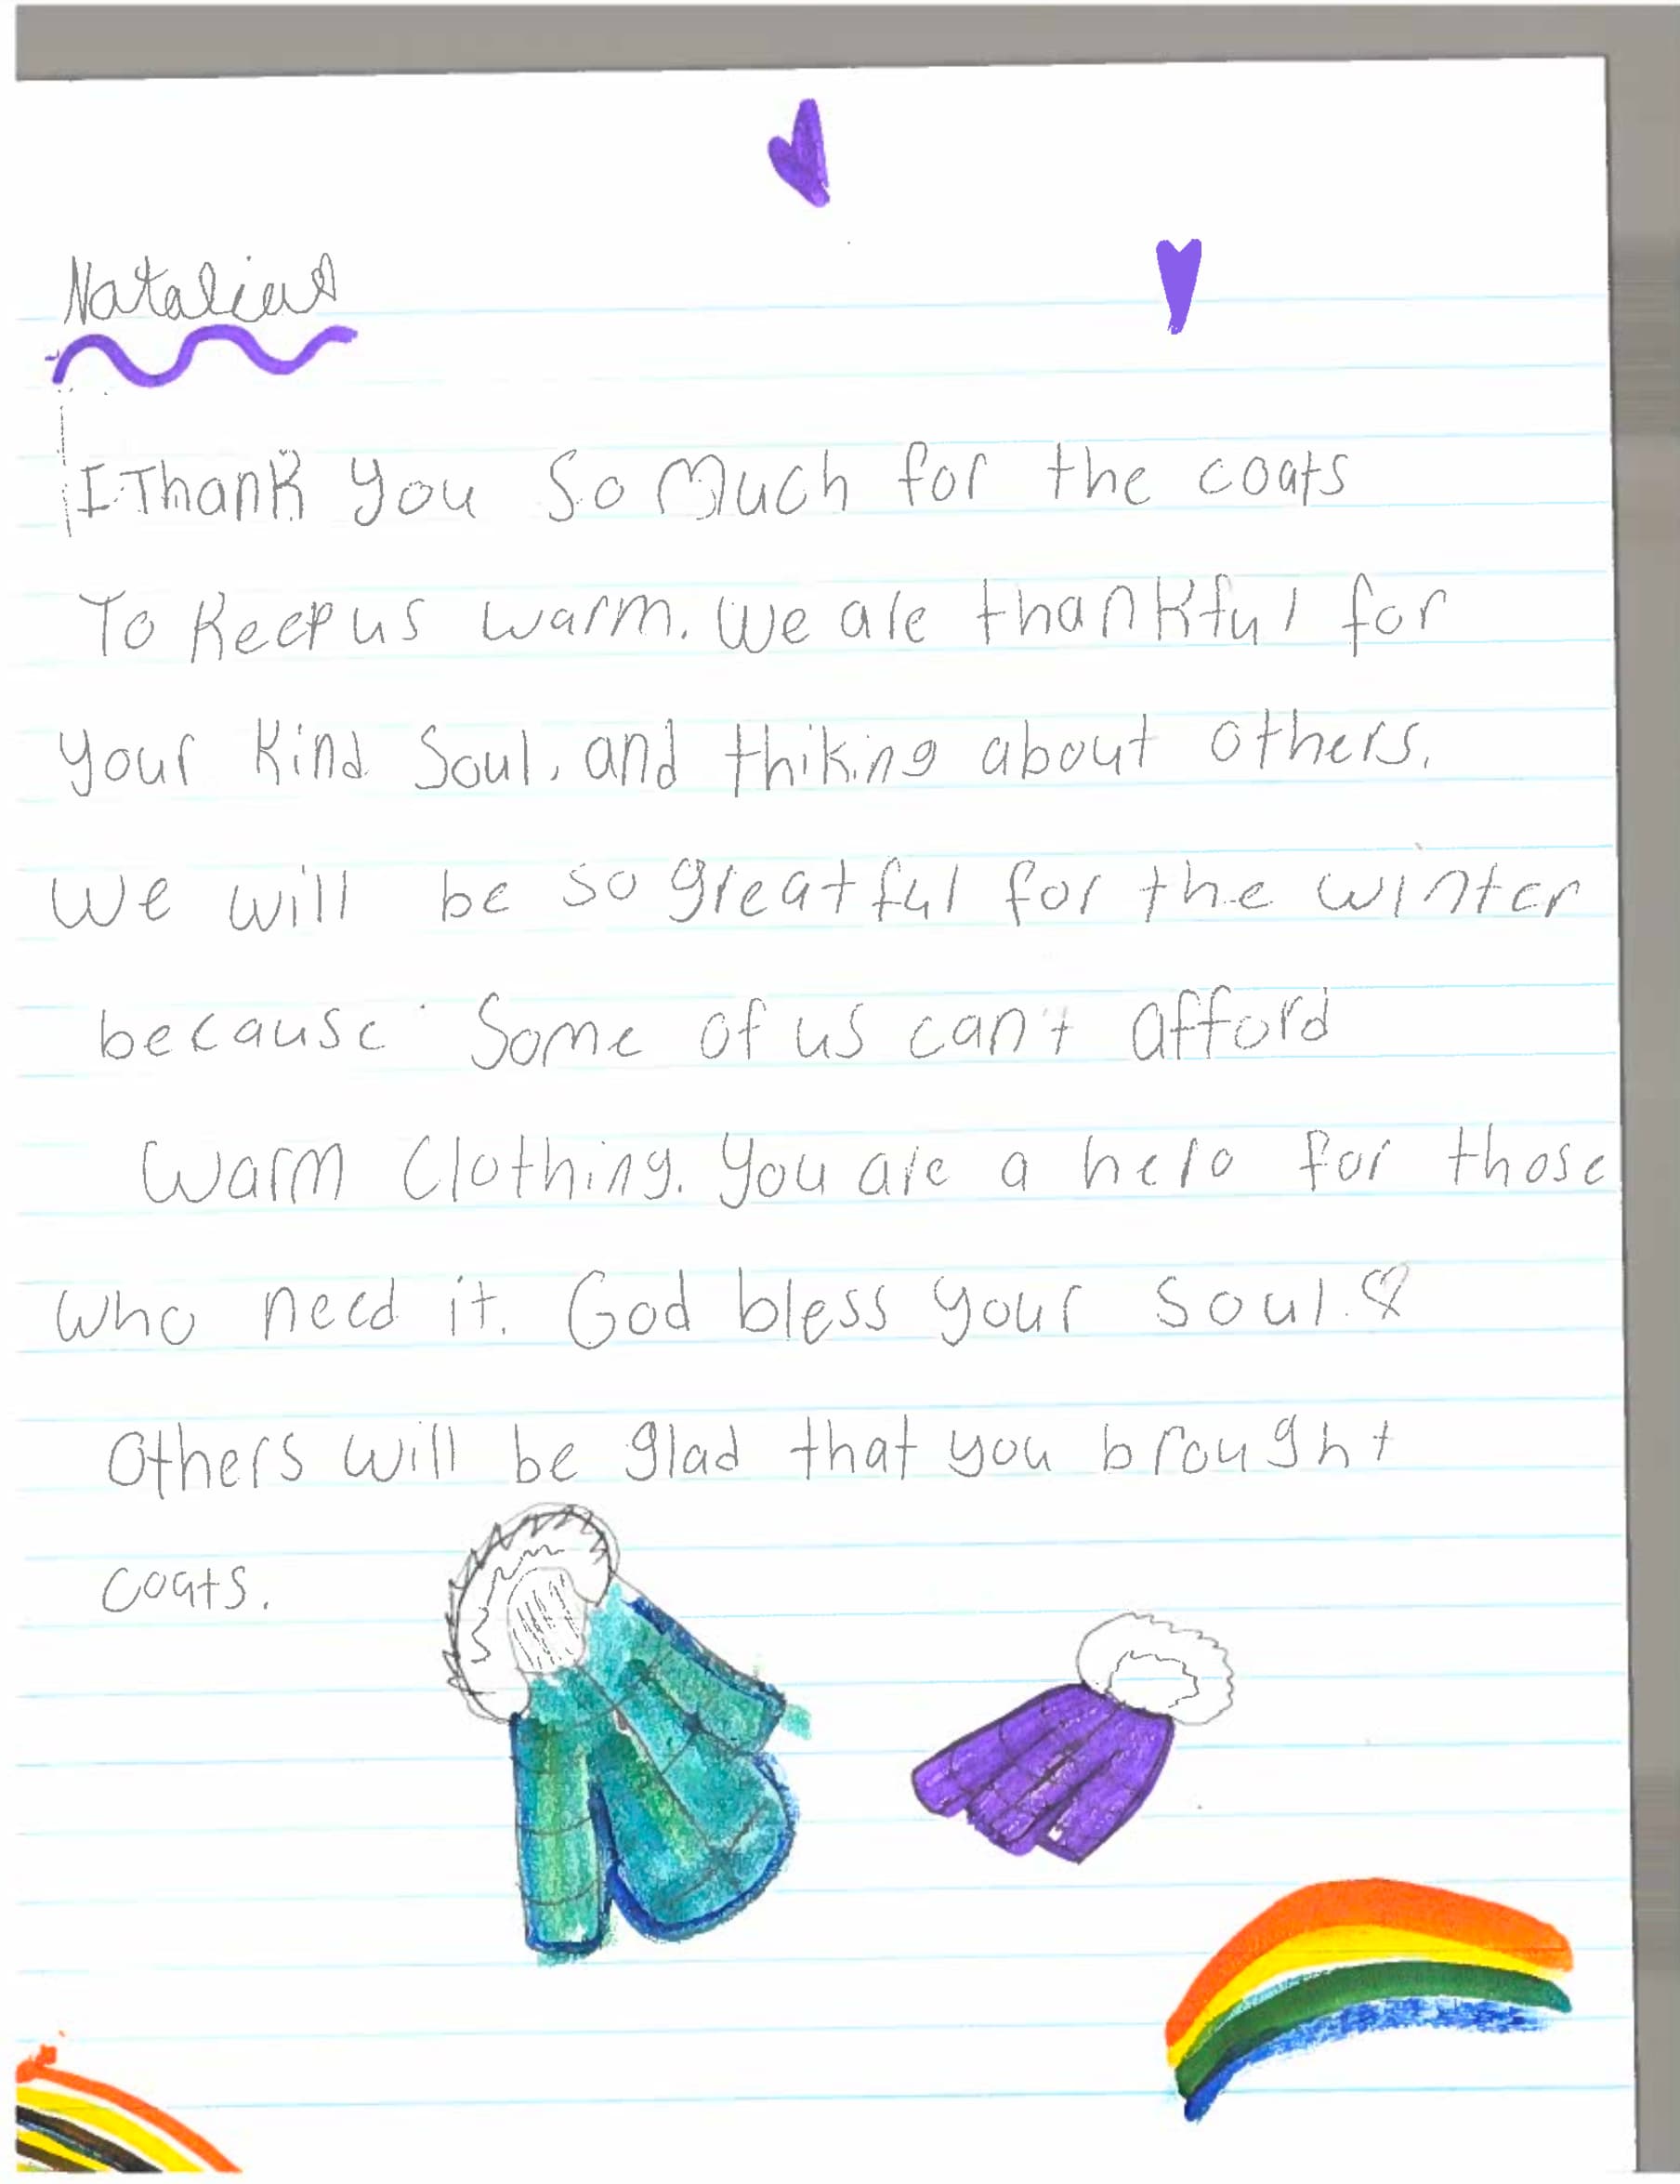 Natalia
I Thank you So Much for the coats
To Keep us warm. We are thankful for
your Kind Soul, and thiking about others.
We will be so greatful for the winter
because Some of us can't afford
Warm Clothing. You are a hero for those
who need it. God bless your soul.
Others will be glad that you brought
coats.